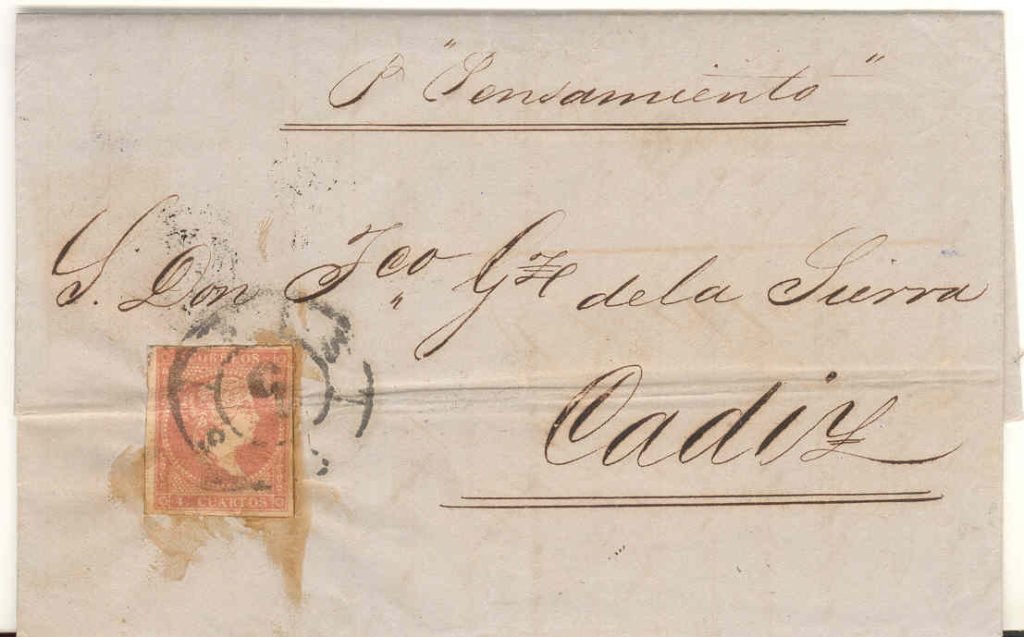 P "Pensamiento"
S. Don Fco Gz de la Sierra
Cadiz
CORREOS
CUARTOS